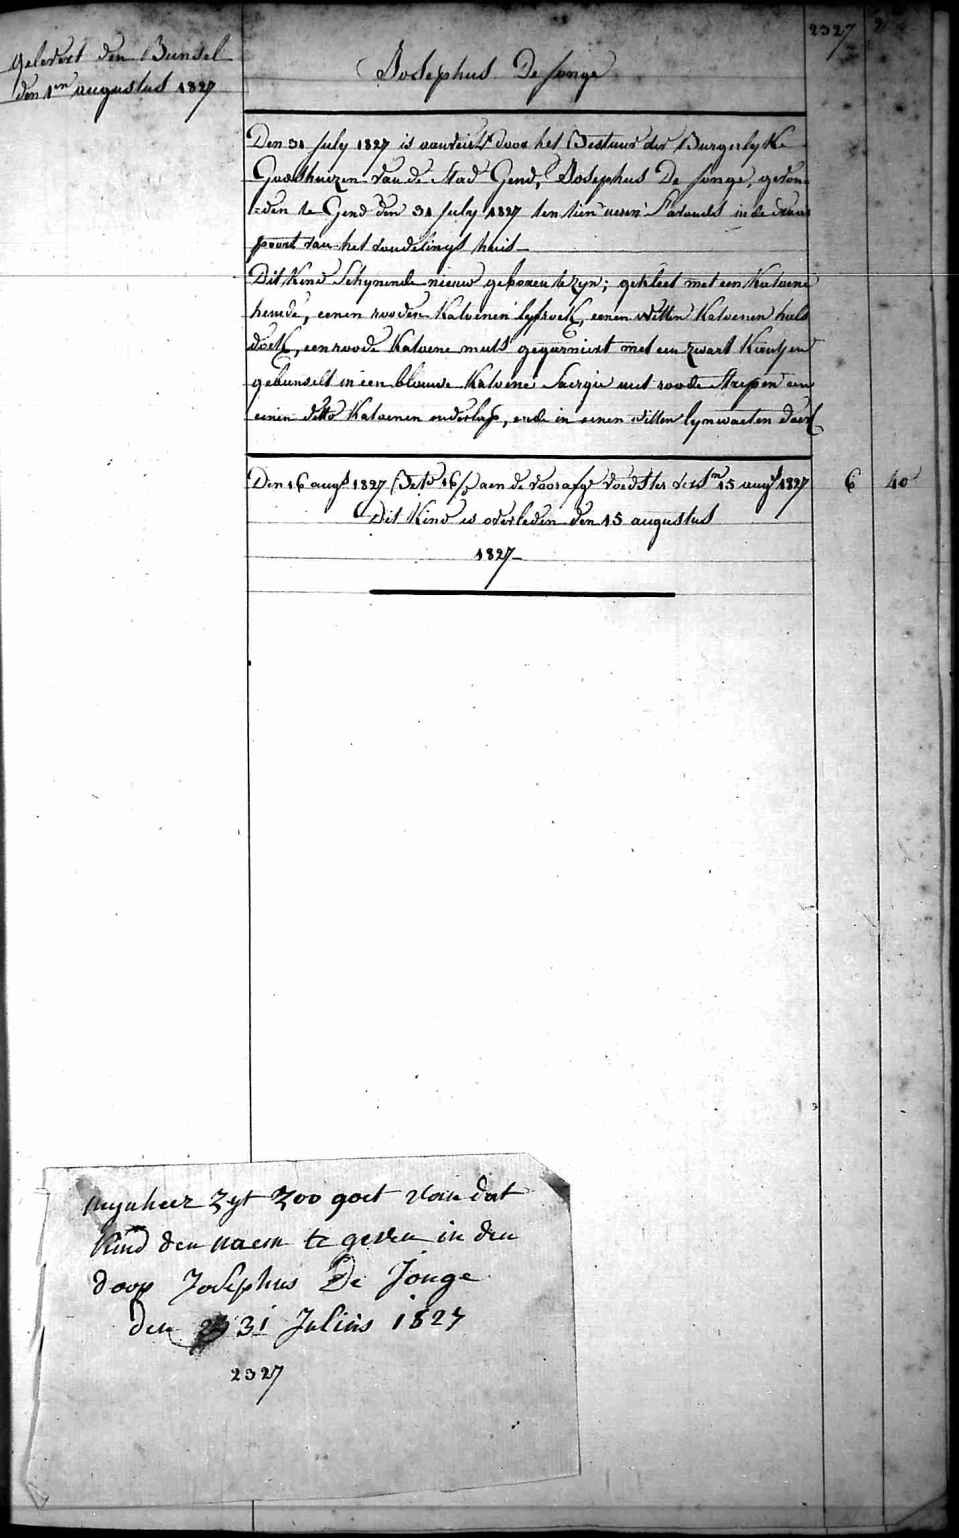 2327
gelevert den Bunsel
den 1en augustus 1827
Josephus De Jonge
Den 31 July 1827 is aanveirt door het Bestuur der Burgerlyke
Godshuizen van de Stad Gend, Josephus De Jonge, gevon-
den te Gend den 31 July 1827 ten tien uren s'avonds in de draai
poort van het vondelings huis
Dit Kind Schynende nieuw geboren te zyn; gekleet met een katoene
hemde, eenen rooden Katoenen lyfrock, eenen witten Katoenen hals
doek, een roode Katoene muts gegarniert met een zwart Kantjen
gebunselt in een blauwe Katoene Saergie met roode Strepen en
eenen ditto Katoenen onderlap, ende in eenen witten lynwaeten doek
Den 16 augs 1827 Betd 16 aen de voorszge voedster 15 augs 1827
6 40
Dit Kind is overleden den 15 augustus
1827
mynheer zyt zoo goet van dat
kind den naem te geven in den
doop Josephus De Jonge
den 31 Julius 1827
2327